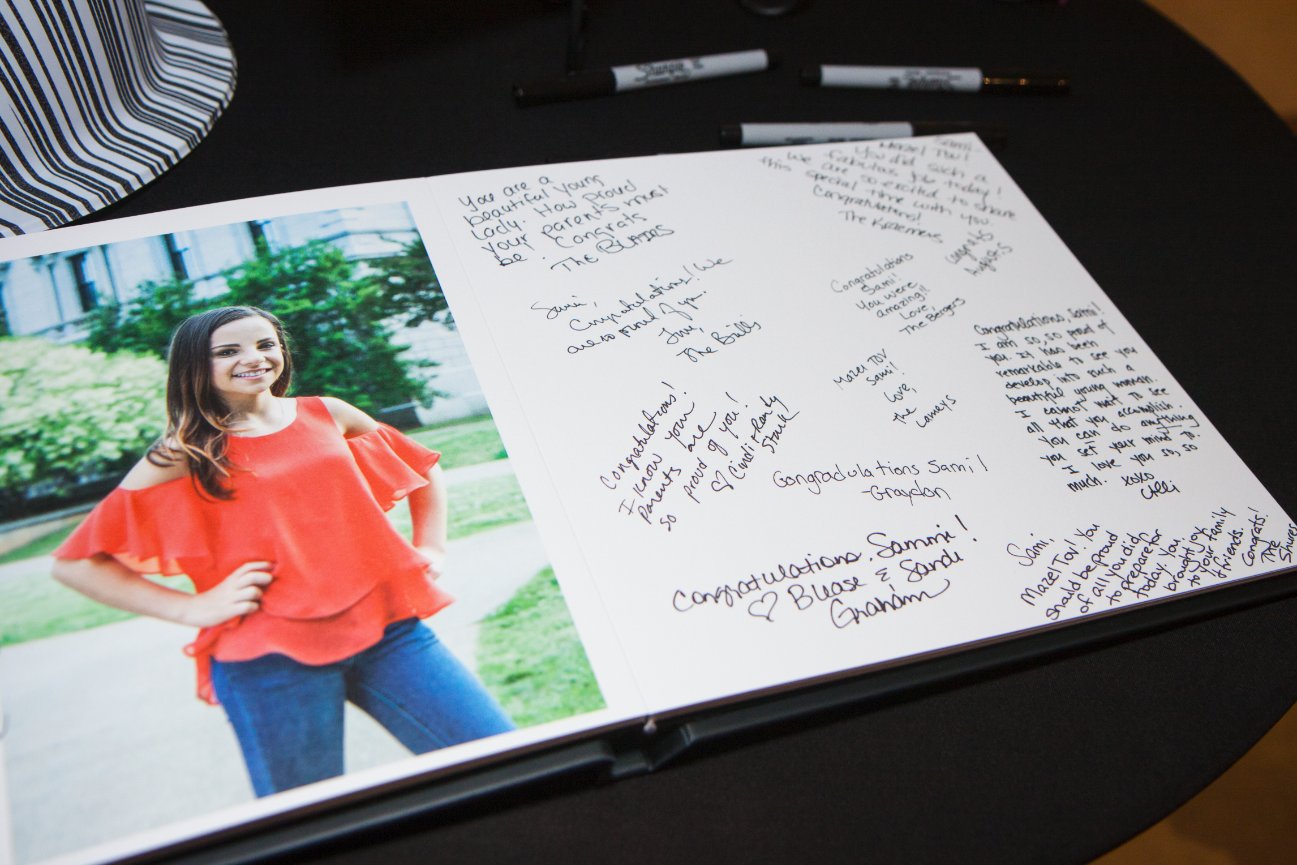 Sharpie
You are a
beautiful young
Lady. How Proud
your parents must
be! Congrats
The BLAIRS
Sami,
Congratulations! We
are so proud of you.
Love,
The Balls
Congratulations!
I know your
Parents are
so proud of you!
♡ Cindi + Randy
Stark
Congratulations Sammi!
♡ Blease & Sandi
Graham
Sami,
Mazel Tov!
You did such a
fabulous job today!
We are so excited to share
this special time with you
Congratulations!
The Kraemers
Congrats
August S
Congratulations
Sami!
You were
amazing!!
Love,
The Bergers
Mazel TOV
Sami!
Love,
the
Comeys
Congradulations Sami!
-Graydon
Congratulations, Sami!
I am so, so proud of
you. It has been
remarkable to see you
develop into such a
beautiful young woman.
I cannot wait to see
all that you accomplish.
You can do anything
you set your mind to.
I love you so, so
much. xoxo
Alli
Sami,
Mazel Tov! You
should be proud
of all you did
to prepare for
today. You
brought joy
to your family
& friends.
Congrats!
The
Shures